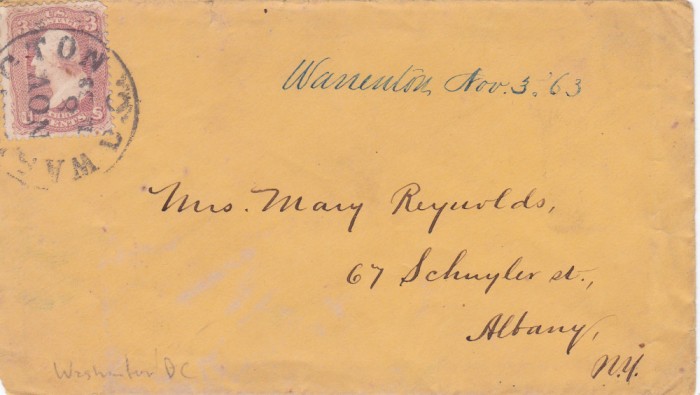 3 U.S. 3
POSTAGE
WASHINGTON D.C.
NOV 8
Warrenton, Nov. 3. '63
Mrs. Mary Reynolds,
67 Schuyler st.,
Albany,
N.Y.
Washington DC